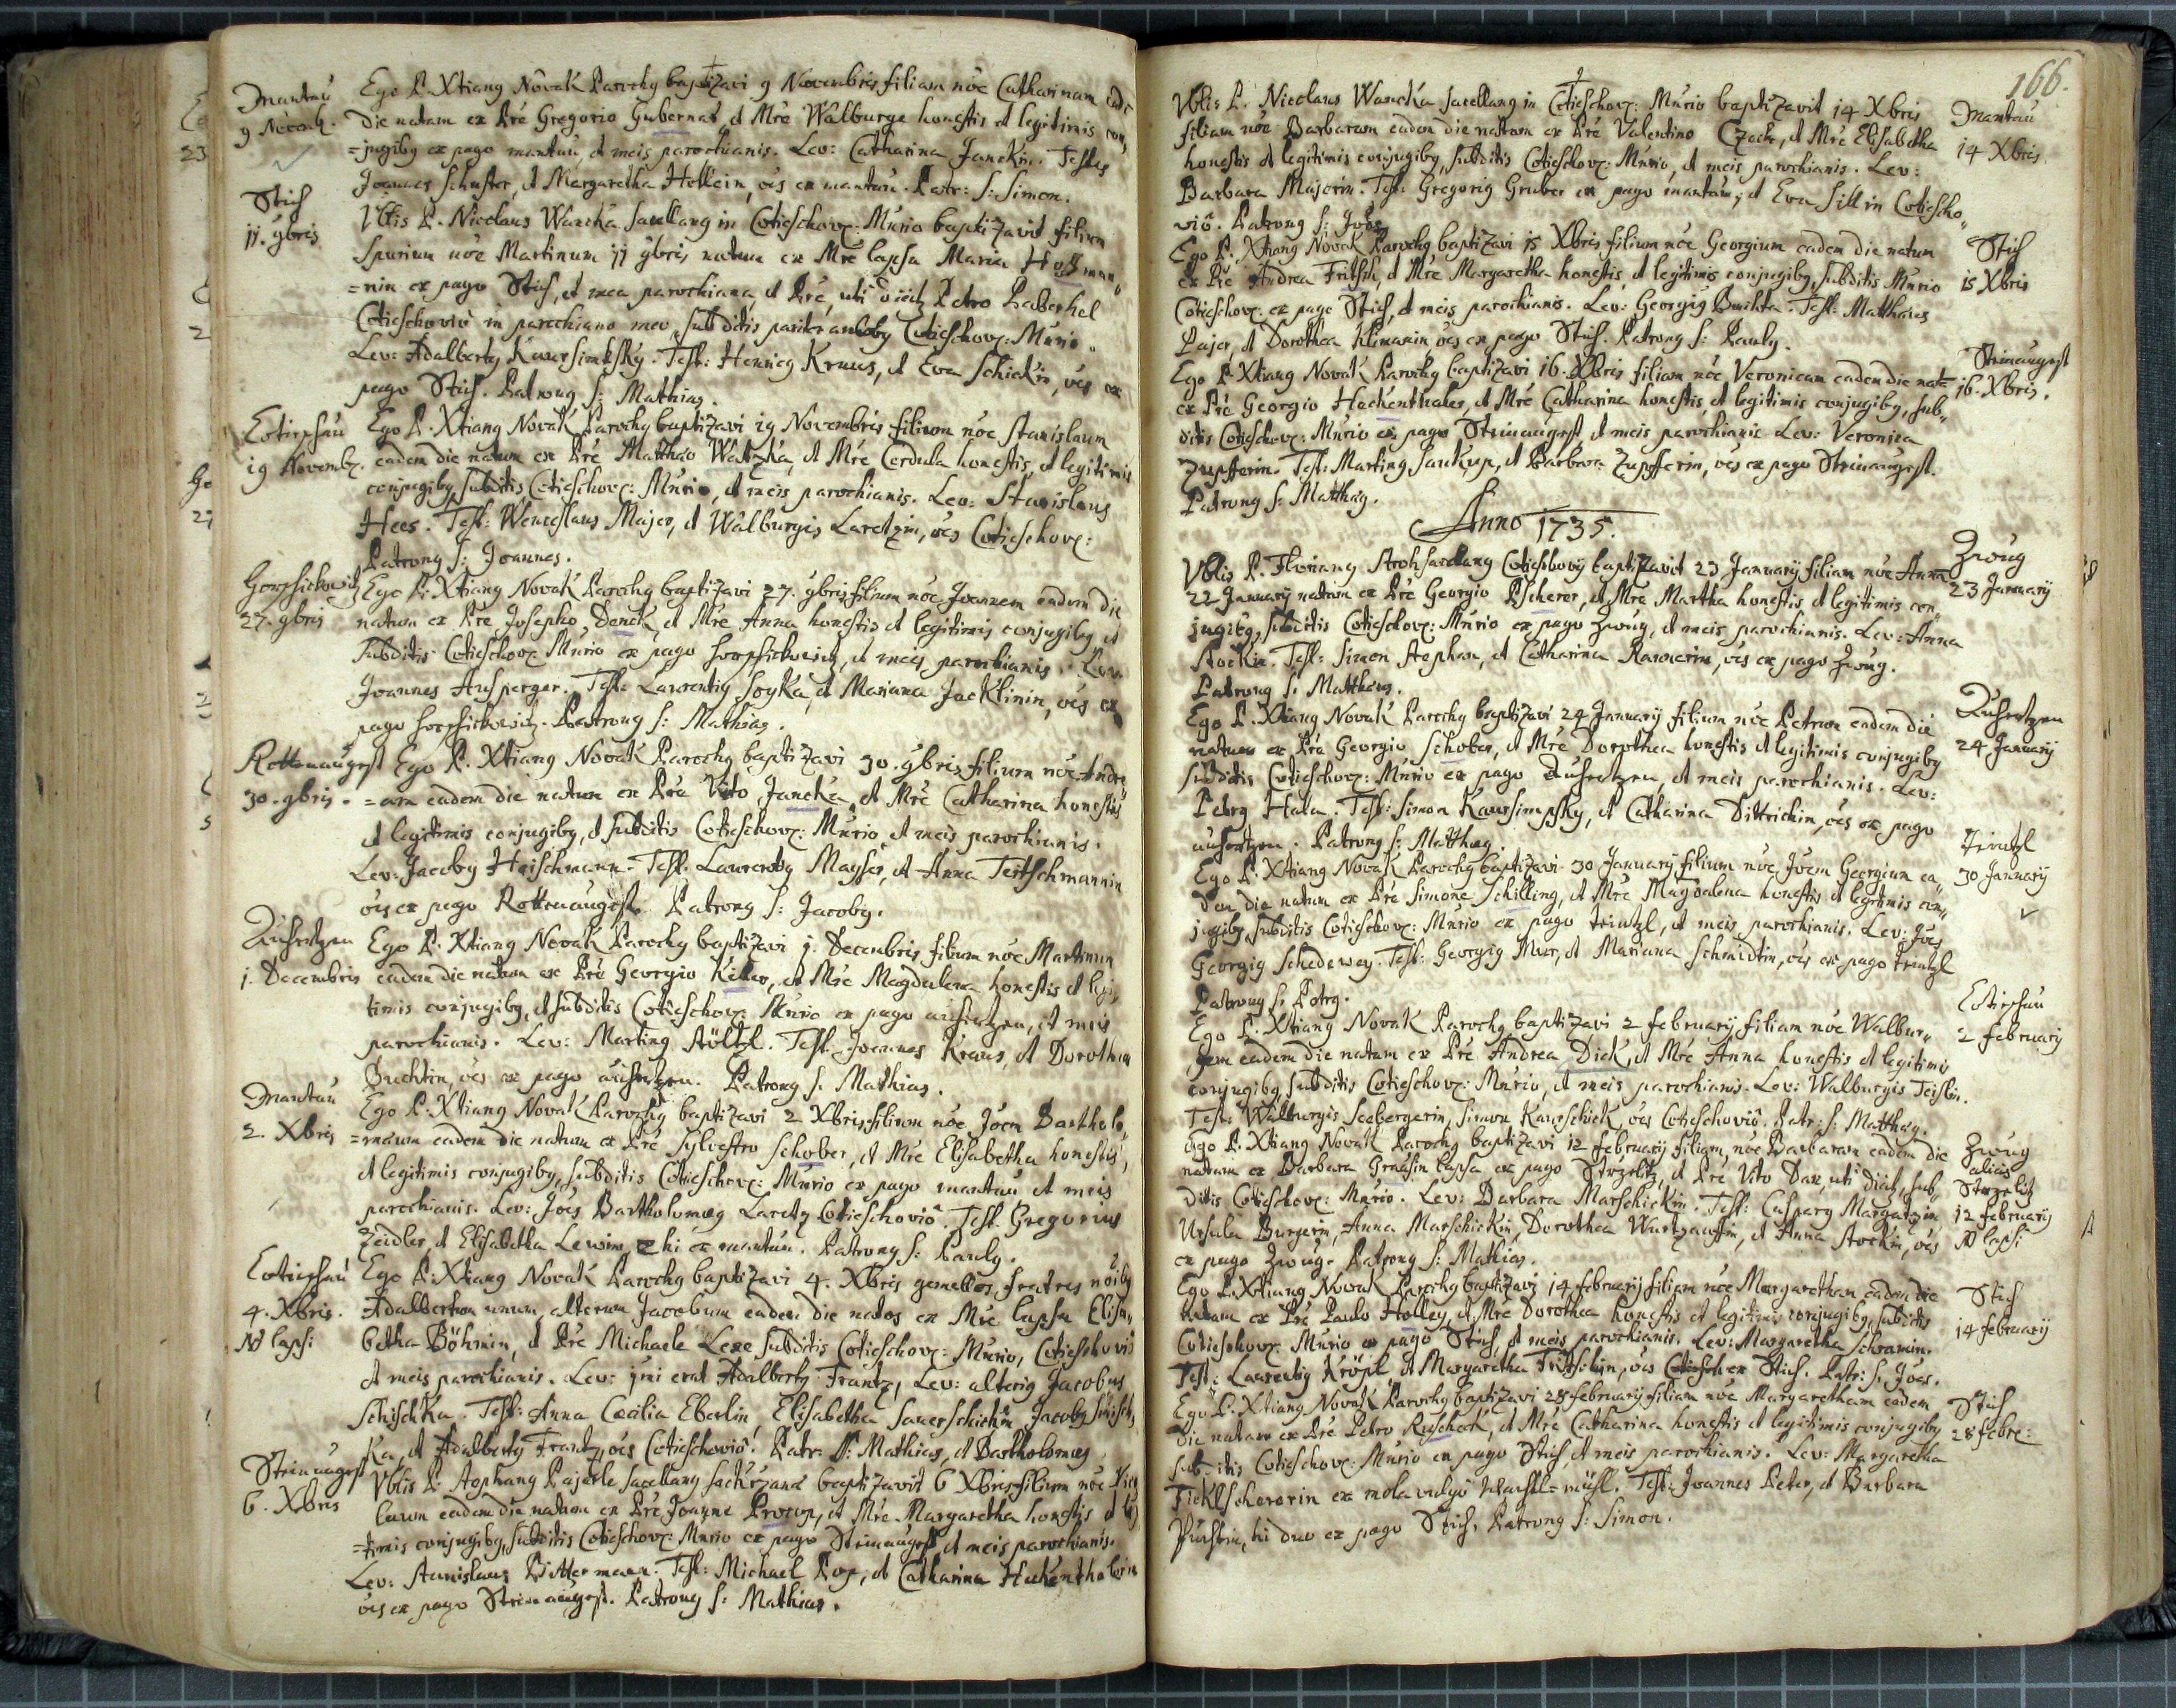 Mantau
9 Novemb.
Ego P. Xtiang Novak Parochg baptizavi 9 Novembris filiam nōe Catharinam eadē
die natam ex Pre Gregorio Gubernat, et Mre Walburga honestis et legitimis con„
=jugibg ex pago mantau, et meis parochianis. Lev: Catharina Janckin. Testes
Joannes Schuster, et Margaretha Hollein, oēs ex mantau. Patr: S: Simon.
Stich
11. 9bris
Vblis P. Nicolaus Wancka Sacellang in Cotieschov: Murio baptizavit filium
spurium nōe Martinum 11 9bris natum ex Mre lapsa Maria Hoffman„
=nin ex pago Stich, et mea parochiana, et Pre, uti dicit, Petro Laberhel
Cotieschoviō in parochiano meo, subditis pariter ambobg Cotieschov: Murio.
Lev: Adalbertg Kaursimbsky. Test: Henricg Kraus, et Eva Schickin, oēs ex
pago Stich. Patrong S: Mathias.
Cotieschau
19 Novemb.
Ego P. Xtiang Novak Parochg baptizavi 19 Novembris filium nōe Stanislaum
eadem die natum ex Pre Matthæo Watzka, et Mre Cordula honestis, et legitimis
conjugibg, subditis Cotieschov: Murio, et meis parochianis. Lev: Stanislaus
Hees. Test: Wenceslaus Majer, et Walburgis Laretzin, oēs Cotieschov:
Patrong S: Joannes.
Horschickowitz
27. 9bris
Ego P. Xtiang Novak Parochg baptizavi 27. 9bris filium nōe Joannem eadem die
natum ex Pre Josepho Denck, et Mre Anna honestis et legitimis conjugibg, et
subditis Cotieschov: Murio ex pago horschickowitz, et meis parochianis. Lev:
Joannes Ausperger. Test: Laurentig Soyka, et Mariana Jacklinin, oēs ex
pago horschickowitz. Patrong S: Mathias.
Rottenaugest
30. 9bris.
Ego P. Xtiang Novak Parochg baptizavi 30. 9bris filium nōe Andre
=am eadem die natum ex Pre Vito Jancka, et Mre Catharina honestis
et legitimis conjugibg, et subditis Cotieschov: Murio et meis parochianis.
Lev: Jacobg Heischmann. Test: Laurentg Mayser, et Anna Teitschmannin
oēs ex pago Rottenaugest. Patrong S: Jacobg.
Auhertzen
1. Decembris
Ego P. Xtiang Novak Parochg baptizavi 1. Decembris filium nōe Martinum
eadem die natum ex Pre Georgio Killer, et Mre Magdalena honestis et legi„
timis conjugibg, et subditis Cotieschov: Murio ex pago auhertzen, et meis
parochianis. Lev: Marting Stöltzl. Test: Joannes Kraus, et Dorothea
Buchtin, oēs ex pago auhertzen. Patrong S: Mathias.
Mantau
2. Xbris
Ego P. Xtiang Novak Parochg baptizavi 2 Xbris filium nōe Joēm Bartholo„
=mæum eadem die natum ex Pre Sylvestro Schober, et Mre Elisabetha honestis,
et legitimis conjugibg, subditis Cotieschov: Murio ex pago mantau et meis
parochianis. Lev: Joēs Bartholomæg Laretz Cotieschoviō. Test: Gregorius
Zeidler, et Elisabetha Lewin, 2 hi ex mantau. Patrong S: Paulg.
Cotieschau
4. Xbris.
NB lapsi
Ego P. Xtiang Novak Parochg baptizavi 4. Xbris gemellos fratres nōibg
Adalbertum unum, alterum Jacobum eadem die natos ex Mre lapsa Elisa„
betha Böhmin, et Pre Michaele Lexe subditis Cotieschov: Murio, Cotieschoviō
et meis parochianis. Lev: 1mi erat Adalbertg Frantz, Lev: alterig Jacobus
Schischka. Test: Anna Cæcilia Eberlin, Elisabetha Sauerschickin, Jacobg Schisch„
ka, et Adalbertg Frantz, oēs Cotieschoviō. Patr: SS: Mathias, et Bartholomæg
Steinaugest
6. Xbris
Vblis P. Stephang Pajerle Sacellang baptizavit 6 Xbris filium nōe Nico„
laum eadem die natum ex Pre Joanne Procop, et Mre Margaretha honestis et legi
=timis conjugibg, subditis Cotieschov: Murio ex pago Steinaugest, et meis parochianis.
Lev: Stanislaus Bittermann. Test: Michael Pop, et Catharina Hackenthalerin
oēs ex pago Steinaugest. Patrong S: Mathias.
166.
Vblis P. Nicolaus Wancka Sacellang in Cotieschov: Murio baptizavit 14 Xbris
filiam nōe Barbaram eadem die natam ex Pre Valentino Czack, et Mre Elisabetha
honestis et legitimis conjugibg, subditis Cotieschov: Murio, et meis parochianis. Lev:
Barbara Majerin. Test: Gregorig Gruber ex pago mantau, et Eva Sillin Cotiescho„
viō. Patrong S: Joēs
Mantau
14 Xbris
Ego P. Xtiang Novak Parochg baptizavi 15 Xbris filium nōe Georgium eadem die natum
ex Pre Andrea Fritsch, et Mre Margaretha honestis, et legitimis conjugibg, subditis Murio
Cotieschov: ex pago Stich, et meis parochianis. Lev: Georgig Buchta. Test: Matthæus
Pajer, et Dorothea Klimanin oēs ex pago Stich. Patrong S: Paulg.
Stich
15 Xbris
Ego P. Xtiang Novak Parochg baptizavi 16. Xbris filiam nōe Veronicam eadem die natā
ex Pre Georgio Hackenthaler, et Mre Catharina honestis, et legitimis conjugibg, sub„
ditis Cotieschov: Murio ex pago Steinaugest, et meis parochianis. Lev: Veronica
Zupfferin. Test: Marting Saukup, et Barbara Zupfferin, oēs ex pago Steinaugest.
Patrong S: Matthæg.
Steinaugest
16. Xbris.
Anno 1735.
Vblis P. Floriang Stroh Sacellang Cotieschovÿ baptizavit 23 Januarÿ filiam nōe Annam
22 Januarÿ natam ex Pre Georgio Pscherer, et Mre Martha honestis, et legitimis con„
jugibg, subditis Cotieschov: Murio ex pago Zwug, et meis parochianis. Lev: Anna
Stockin. Test: Simon Stephan, et Catharina Ramerin, oēs ex pago Zwug.
Patrong S: Matthæus.
Zwug
23 Januarÿ
Ego P. Xtiang Novak Parochg baptizavi 24 Januarÿ filium nōe Petrum eadem die
natum ex Pre Georgio Schober, et Mre Dorothea honestis et legitimis conjugibg
subditis Cotieschov: Murio ex pago Auhertzen, et meis parochianis. Lev:
Petrg Hala. Test: Simon Kaursimpsky, et Catharina Dittrichin, oēs ex pago
auhertzen. Patrong S: Matthæg.
Auhertzen
24 Januarÿ
Ego P. Xtiang Novak Parochg baptizavi 30 Januarÿ filium nōe Joēm Georgium ea„
dem die natum ex Pre Simone Schilling, et Mre Magdalena honestis et legitimis con„
jugibg, subditis Cotieschov: Murio ex pago teintzl, et meis parochianis. Lev: Joēs
Georgig Schedewey. Test: Georgig Auer, et Mariana Schmidtin, oēs ex pago teintzl
Patrong S: Petrg.
Teintzl
30 Januarÿ
Ego P. Xtiang Novak Parochg baptizavi 2 februarÿ filiam nōe Walbur„
gem eadem die natam ex Pre Andrea Dick, et Mre Anna honestis et legitimis
conjugibg, subditis Cotieschov: Murio, et meis parochianis. Lev: Walburgis Teislin.
Test: Walburgis Seebergerin, Simon Kaurschick, oēs Cotieschoviō. Patr: S: Matthæg.
Cotieschau
2 februarÿ
Ego P. Xtiang Novak Parochg baptizavi 12 februarÿ filiam nōe Barbaram eadem die
natam ex Barbara Grassin lapsa ex pago Strzelitz, et Pre Vito Dax, uti dicit, sub„
ditis Cotieschov: Murio. Lev: Barbara Marschickin. Test: Casparg
Ursula Burgerin, Anna Marschickin, Dorothea, et Anna Stockin, oēs
ex pago Zwug. Patrong S: Mathias.
Zwug
alias
Strzelitz
12 februarÿ
NB lapsi
Ego P. Xtiang Novak Parochg baptizavi 14 februarÿ filiam nōe Margaretham eadem die
natam ex Pre Paulo Holley, et Mre Dorothea honestis et legitimis conjugibg, subditis
Cotieschov: Murio ex pago Stich, et meis parochianis. Lev: Margaretha Schramin.
Test: Laurentig Kröpl, et Margaretha Fritschin, oēs ex Stich. Patr: S. Joēs.
Stich
14 februarÿ
Ego P. Xtiang Novak Parochg baptizavi 28 februarÿ filiam nōe Margaretham eadem
die natam ex Pre Petro Ruscheck, et Mre Catharina honestis et legitimis conjugibg
subditis Cotieschov: Murio ex pago Stich, et meis parochianis. Lev: Margaretha
Ficklschererin ex mola vulgo Wachtl=mühl. Test: Joannes Peter, et Barbara
hi duo ex pago Stich. Patrong S: Simon.
Stich
28 febre: